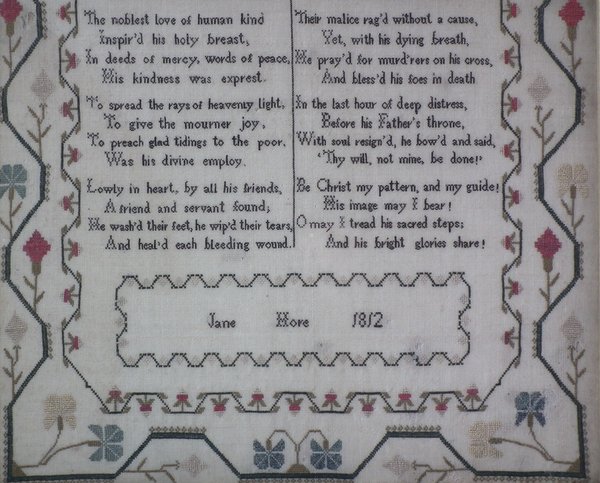 The noblest love of human kind
Inspir'd his holy breast,
In deeds of mercy, words of peace,
His kindness was exprest.
To spread the rays of heavenly light,
To give the mourner joy,
To preach glad tidings to the poor,
Was his divine employ.
Lowly in heart, by all his friends,
A friend and servant found;
He wash'd their feet, he wip'd their tears,
And heal'd each bleeding wound.
Their malice rag'd without a cause,
Yet, with his dying breath,
He pray'd for murd'rers on his cross,
And bless'd his foes in death
In the last hour of deep distress,
Before his Father's throne,
With soul resign'd, he bow'd and said,
'Thy will, not mine, be done!'
Be Christ my pattern, and my guide!
His image may I bear!
O may I tread his sacred steps;
And his bright glories share!
Jane Hore 1812